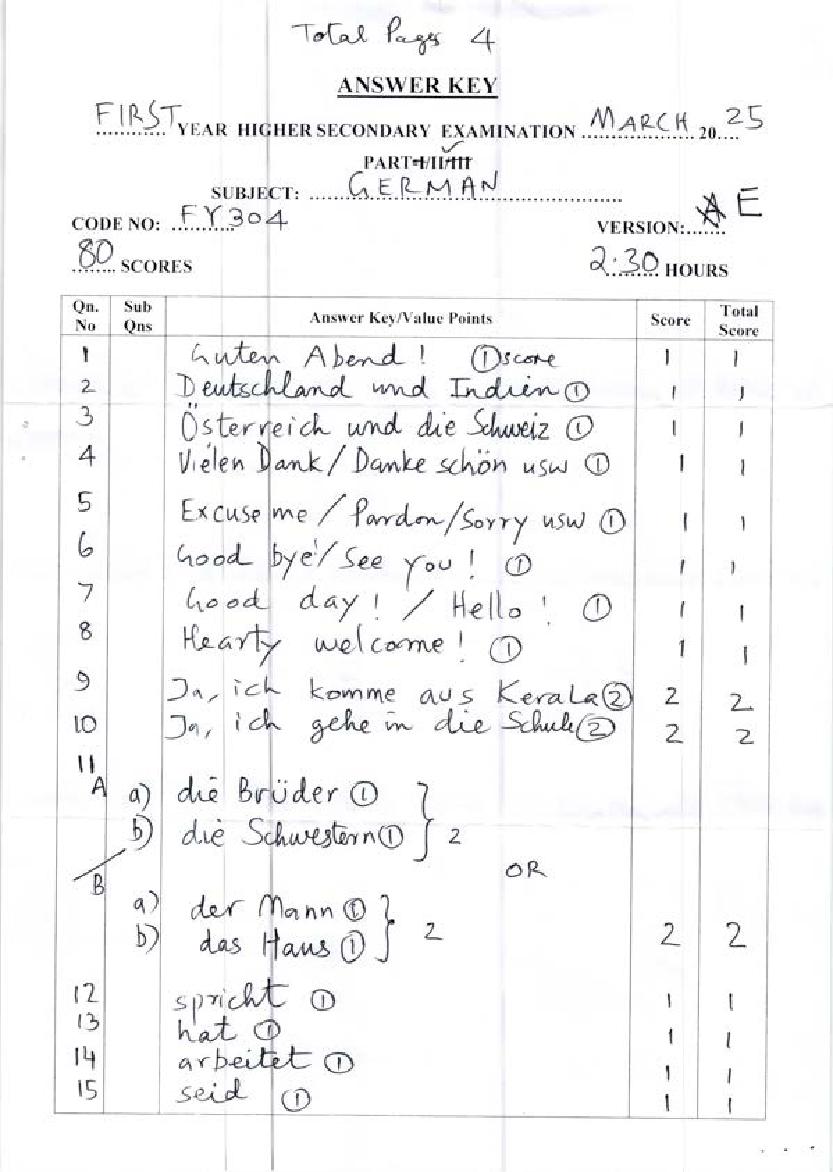 Total Pages 4
ANSWER KEY
FIRST YEAR HIGHER SECONDARY EXAMINATION MARCH 2025
PART I/II/III
SUBJECT: GERMAN
CODE NO: FY304 VERSION: E
80 SCORES 2.30 HOURS
Qn. No Sub Qns Answer Key/Value Points Score Total Score
1 Guten Abend! ① score 1 1
2 Deutschland und Indien ① 1 1
3 Österreich und die Schweiz ① 1 1
4 Vielen Dank / Danke schön usw ① 1 1
5 Excuse me / Pardon / Sorry usw ① 1 1
6 Good bye! / See you! ① 1 1
7 Good day! / Hello! ① 1 1
8 Hearty welcome! ① 1 1
9 Ja, ich komme aus Kerala ② 2 2
10 Ja, ich gehe in die Schule ② 2 2
11
A a) die Brüder ①
b) die Schwestern ① } 2
OR
B
a) der Mann ①
b) das Haus ① } 2 2 2
12 spricht ① 1 1
13 hat ① 1 1
14 arbeitet ① 1 1
15 seid ① 1 1